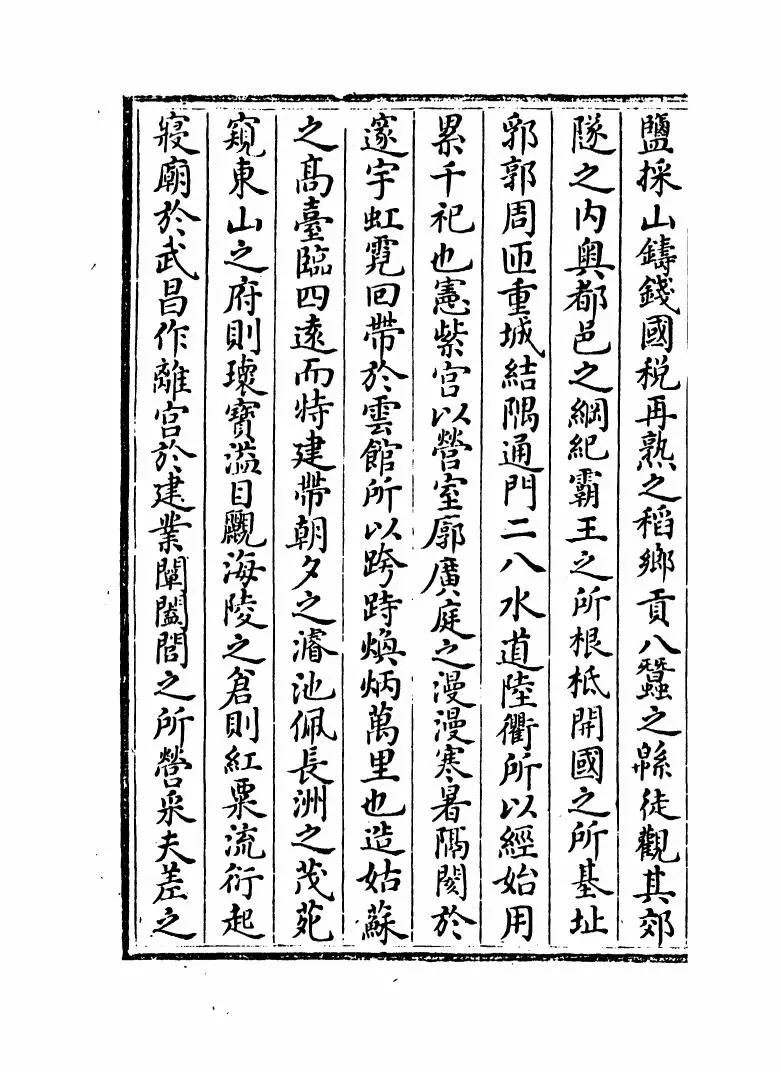 鹽採山鑄錢國稅再熟之稻鄉貢八蠶之緜徒觀其郊
隧之内奥都邑之綱紀霸王之所根柢開國之所基址
郛郭周匝重城結隅通門二八水道陸衢所以經始用
累千祀也憲紫宫以營室廓廣庭之漫漫寒暑隔閡於
邃宇虹霓回帶於雲館所以跨跱煥炳萬里也造姑蘇
之髙臺臨四逺而特建帶朝夕之濬池佩長洲之茂苑
窺東山之府則瓌寳溢目觀海陵之倉則紅粟流衍起
寢廟於武昌作離宫於建業闡闔閭之所營采夫差之